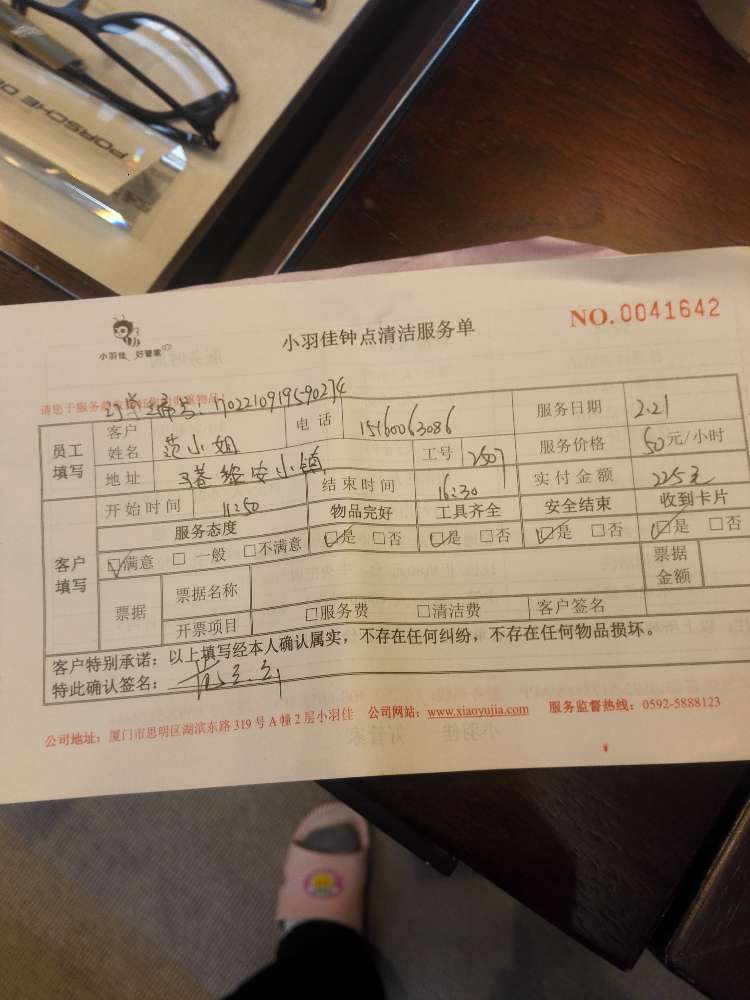 PORSCHE DE
小羽佳 好管家
小羽佳钟点清洁服务单
NO. 0041642
请您于服务
订单编号:
员工填写 客户姓名 范小姐 电话 15160063086 服务日期 2.21
地址 工号 2507 服务价格 50元/小时
开始时间 11:50 结束时间 16:30 实付金额 225元
客户填写 服务态度 物品完好 工具齐全 安全结束 收到卡片
☑满意 □一般 □不满意 ☑是 □否 ☑是 □否 ☑是 □否 ☑是 □否
票据 票据名称 票据金额
开票项目 □服务费 □清洁费 客户签名
客户特别承诺：以上填写经本人确认属实，不存在任何纠纷，不存在任何物品损坏。
特此确认签名：
公司地址：厦门市思明区湖滨东路319号A幢2层小羽佳 公司网站：www.xiaoyujia.com 服务监督热线：0592-5888123